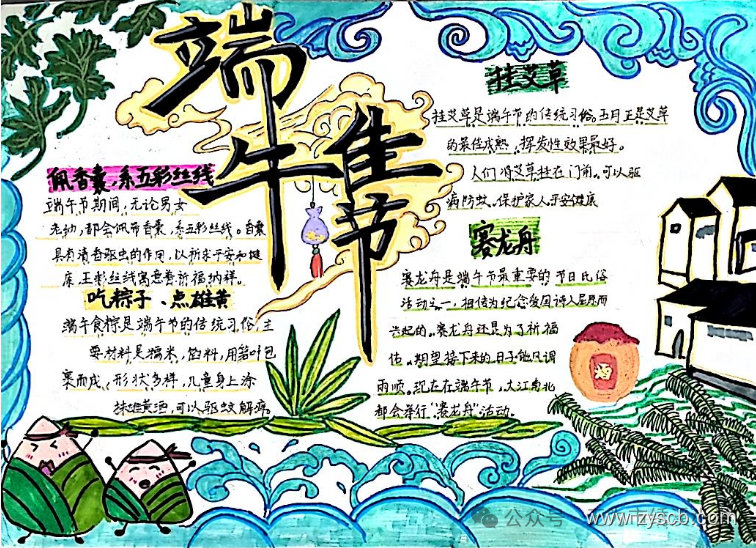 端午佳节
佩香囊、系五彩丝线
端午节期间，无论男女
老幼，都会佩带香囊、系五彩丝线。香囊
具有清香驱虫的作用，以祈求平安和健
康，五彩丝线寓意着祈福纳祥。
吃粽子、点雄黄
端午食粽是端午节的传统习俗，主
要材料是糯米，馅料，用箬叶包
裹而成，形状多样，儿童身上涂
抹雄黄酒，可以驱蚊解痒。
挂艾草
挂艾草是端午节的传统习俗。五月正是艾草
的最佳成熟，挥发性效果最好。
人们将艾草挂在门前，可以驱
病防蚊、保护家人平安健康
赛龙舟
赛龙舟是端午节最重要的节日民俗
活动之一，相传为纪念爱国诗人屈原而
兴起的。赛龙舟还是为了祈福
，期望接下来的日子能风调
雨顺。现在在端午节，大江南北
都会举行“赛龙舟”活动。
公众号
www.zyscb.com